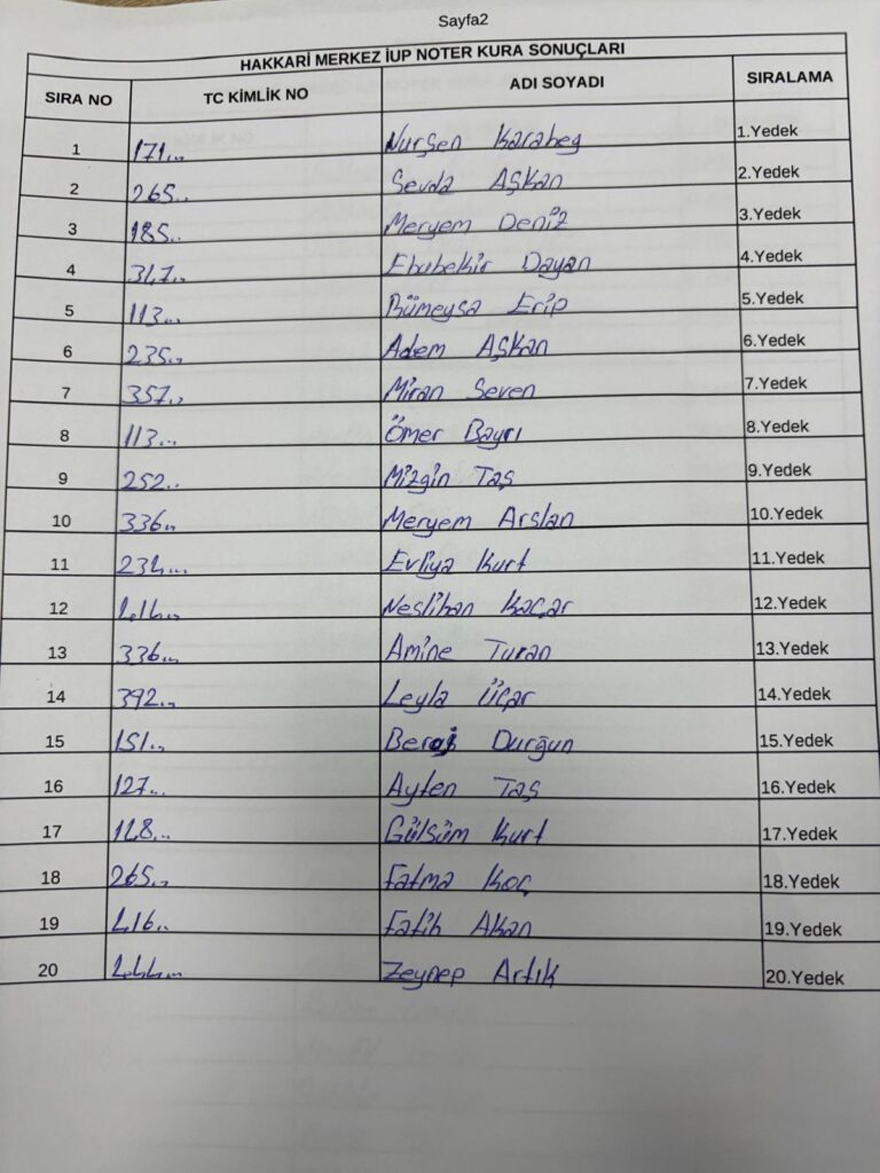 Sayfa2
HAKKARİ MERKEZ İUP NOTER KURA SONUÇLARI
SIRA NO TC KİMLİK NO ADI SOYADI SIRALAMA
1 171... Nurşen Karabeg 1.Yedek
2 265.. Sevda Aşkan 2.Yedek
3 185.. Meryem Deniz 3.Yedek
4 347.. Ebubekir Dayan 4.Yedek
5 113... Rümeysa Erip 5.Yedek
6 235.. Adem Aşkan 6.Yedek
7 357.. Miran Seven 7.Yedek
8 113... Ömer Bayrı 8.Yedek
9 252.. Mizgin Taş 9.Yedek
10 336.. Meryem Arslan 10.Yedek
11 234... Evliya Kurt 11.Yedek
12 Neslihan Kaçar 12.Yedek
13 336... Amine Turan 13.Yedek
14 392.. Leyla Üçar 14.Yedek
15 151.. Durğun 15.Yedek
16 127... Ayten Taş 16.Yedek
17 Gülsüm Kurt 17.Yedek
18 265.. Fatma Koç 18.Yedek
19 Fatih Akan 19.Yedek
20 Zeynep Artık 20.Yedek